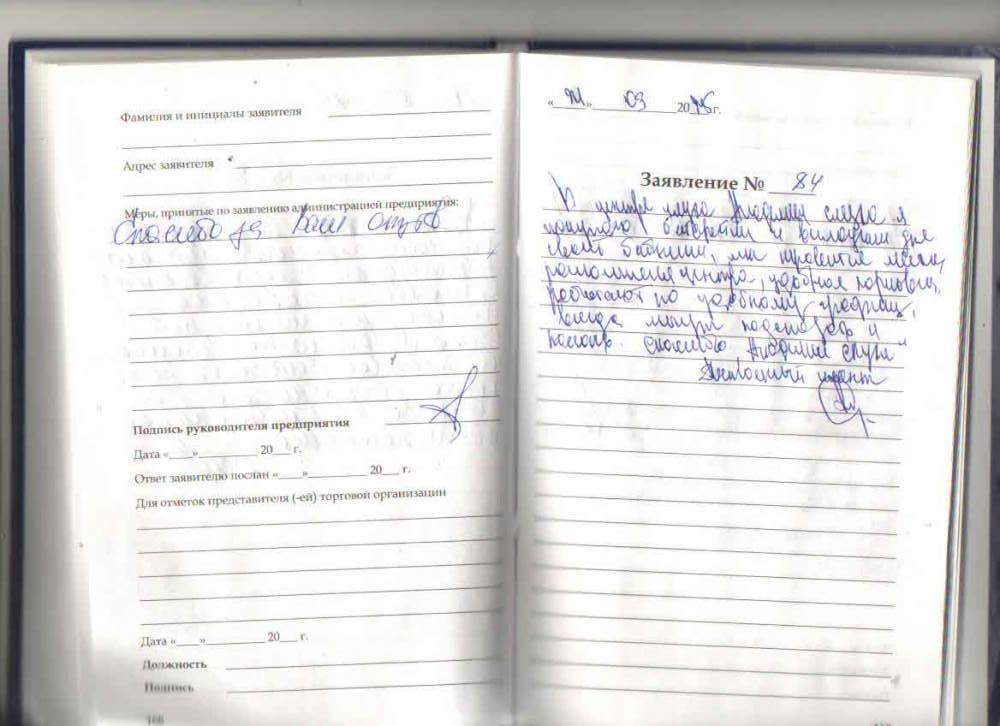 Фамилия и инициалы заявителя
Адрес заявителя
Меры, принятые по заявлению администрацией предприятия:
Спасибо за Ваш отзыв
Подпись руководителя предприятия
Дата «____»__________ 20___ г.
Ответ заявителю послан «____»__________ 20___ г.
Для отметок представителя (-ей) торговой организации
Дата «____»__________ 20___ г.
Должность
Подпись
160
03 20 г.
Заявление № 84
В центре слуха Академия слуха я
покупаю батарейки и вкладыши для
своей бабушки,
расположения центра, удобная парковка,
работают по удобному графику,
всегда могут подсказать и
Спасибо "Академия слуха"